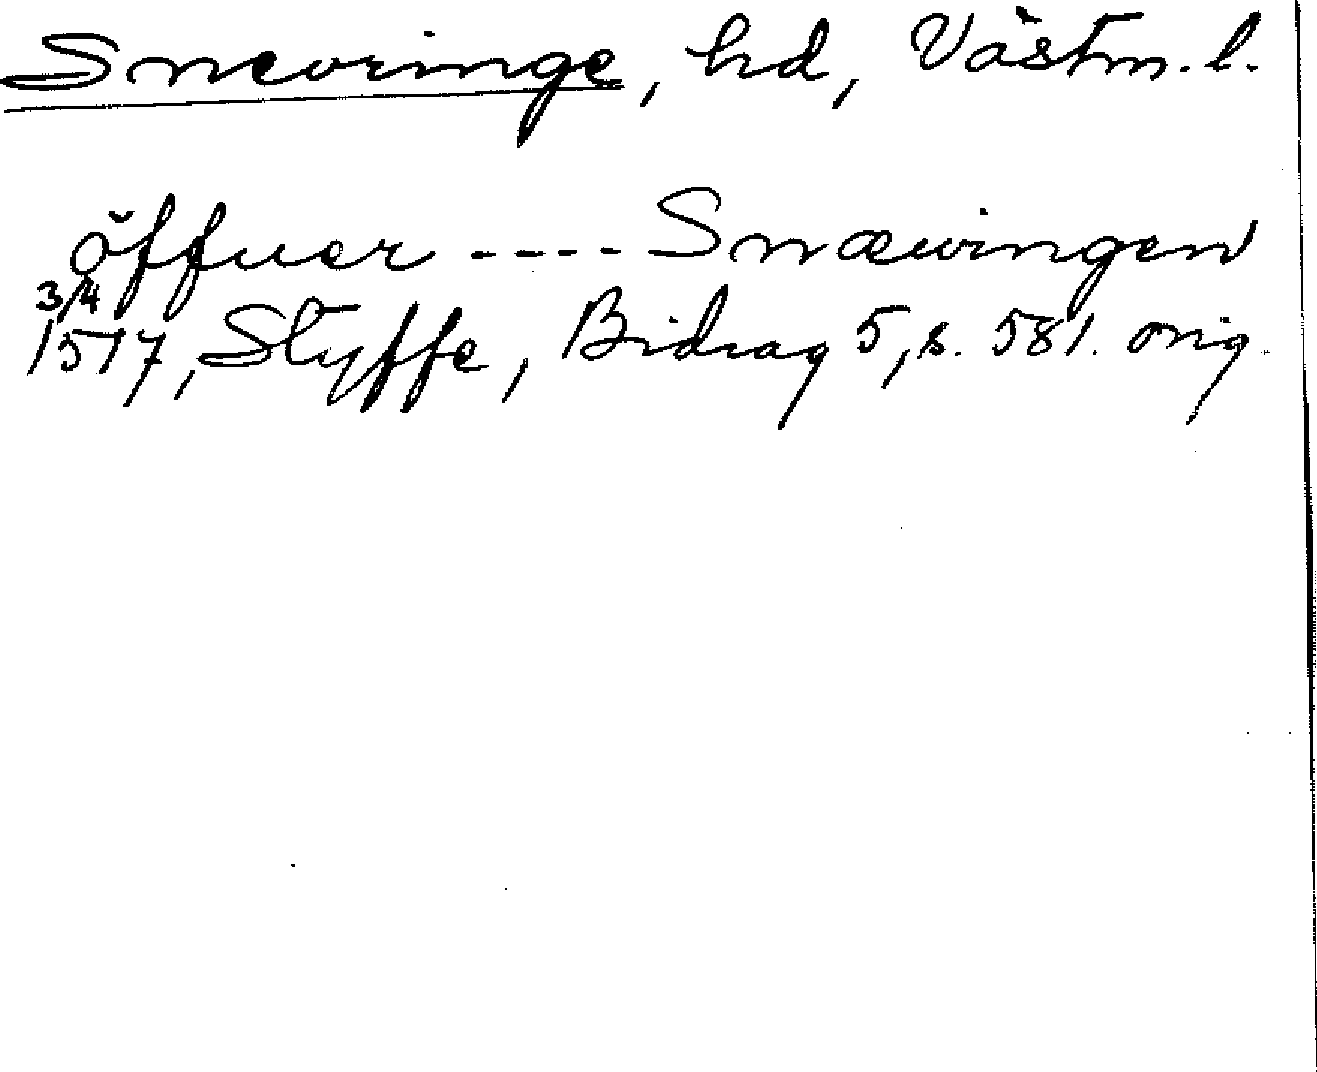 Snevringe, hd, Västm. l.
öffuer ---- Snæwingen
3/4
1517, Styffe, Bidrag 5, s. 581. orig.